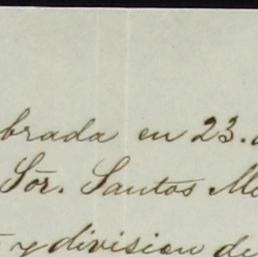 brada en 23.
Sōr. Santos M
y division de